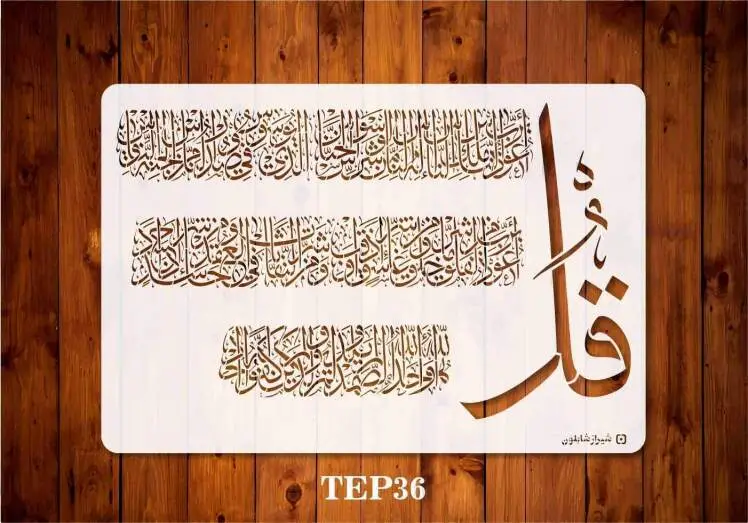 قل
أعوذ برب الناس ملك الناس إله الناس من شر الوسواس الخناس الذي يوسوس في صدور الناس من الجنة والناس
أعوذ برب الفلق من شر ما خلق ومن شر غاسق إذا وقب ومن شر النفاثات في العقد ومن شر حاسد إذا حسد
هو الله أحد الله الصمد لم يلد ولم يولد ولم يكن له كفوا أحد
شیراز شابلون
TEP36